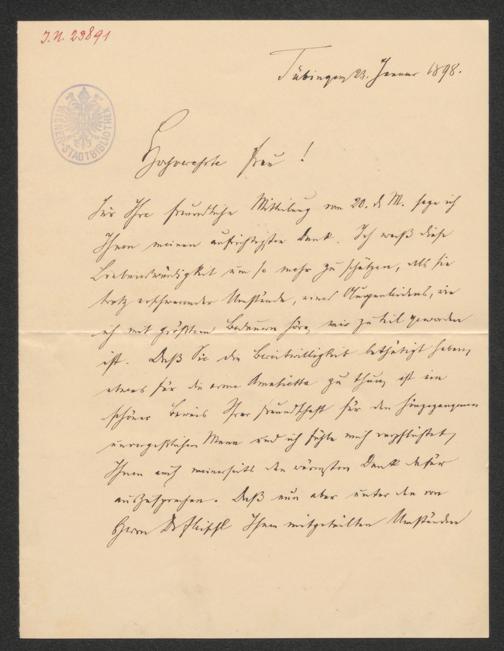 J.N. 23891
WIENER-STADTBIBLIOTHEK
Tübingen 23. Januar 1898.
Hochverehrte Frau!
Für Ihre freundliche Mitteilung vom 20. d. M. sage ich
Ihnen meinen aufrichtigsten Dank. Ich weiß diese
Liebenswürdigkeit um so mehr zu schätzen, als sie
trotz erschwerender Umstände, eines Augenleidens, wie
ich mit größtem Bedauern höre, mir zu teil geworden
ist. Daß Sie die Bereitwilligkeit bethätigt haben,
etwas für die arme zu thun, ist ein
schöner Beweis Ihrer Freundschaft für den hingegangenen
unvergeßlichen Mann und ich fühle mich verpflichtet,
Ihnen auch meinerseits den wärmsten Dank dafür
auszusprechen. Daß nun aber unter den von
Herrn Dr. Ihnen mitgeteilten Umständen